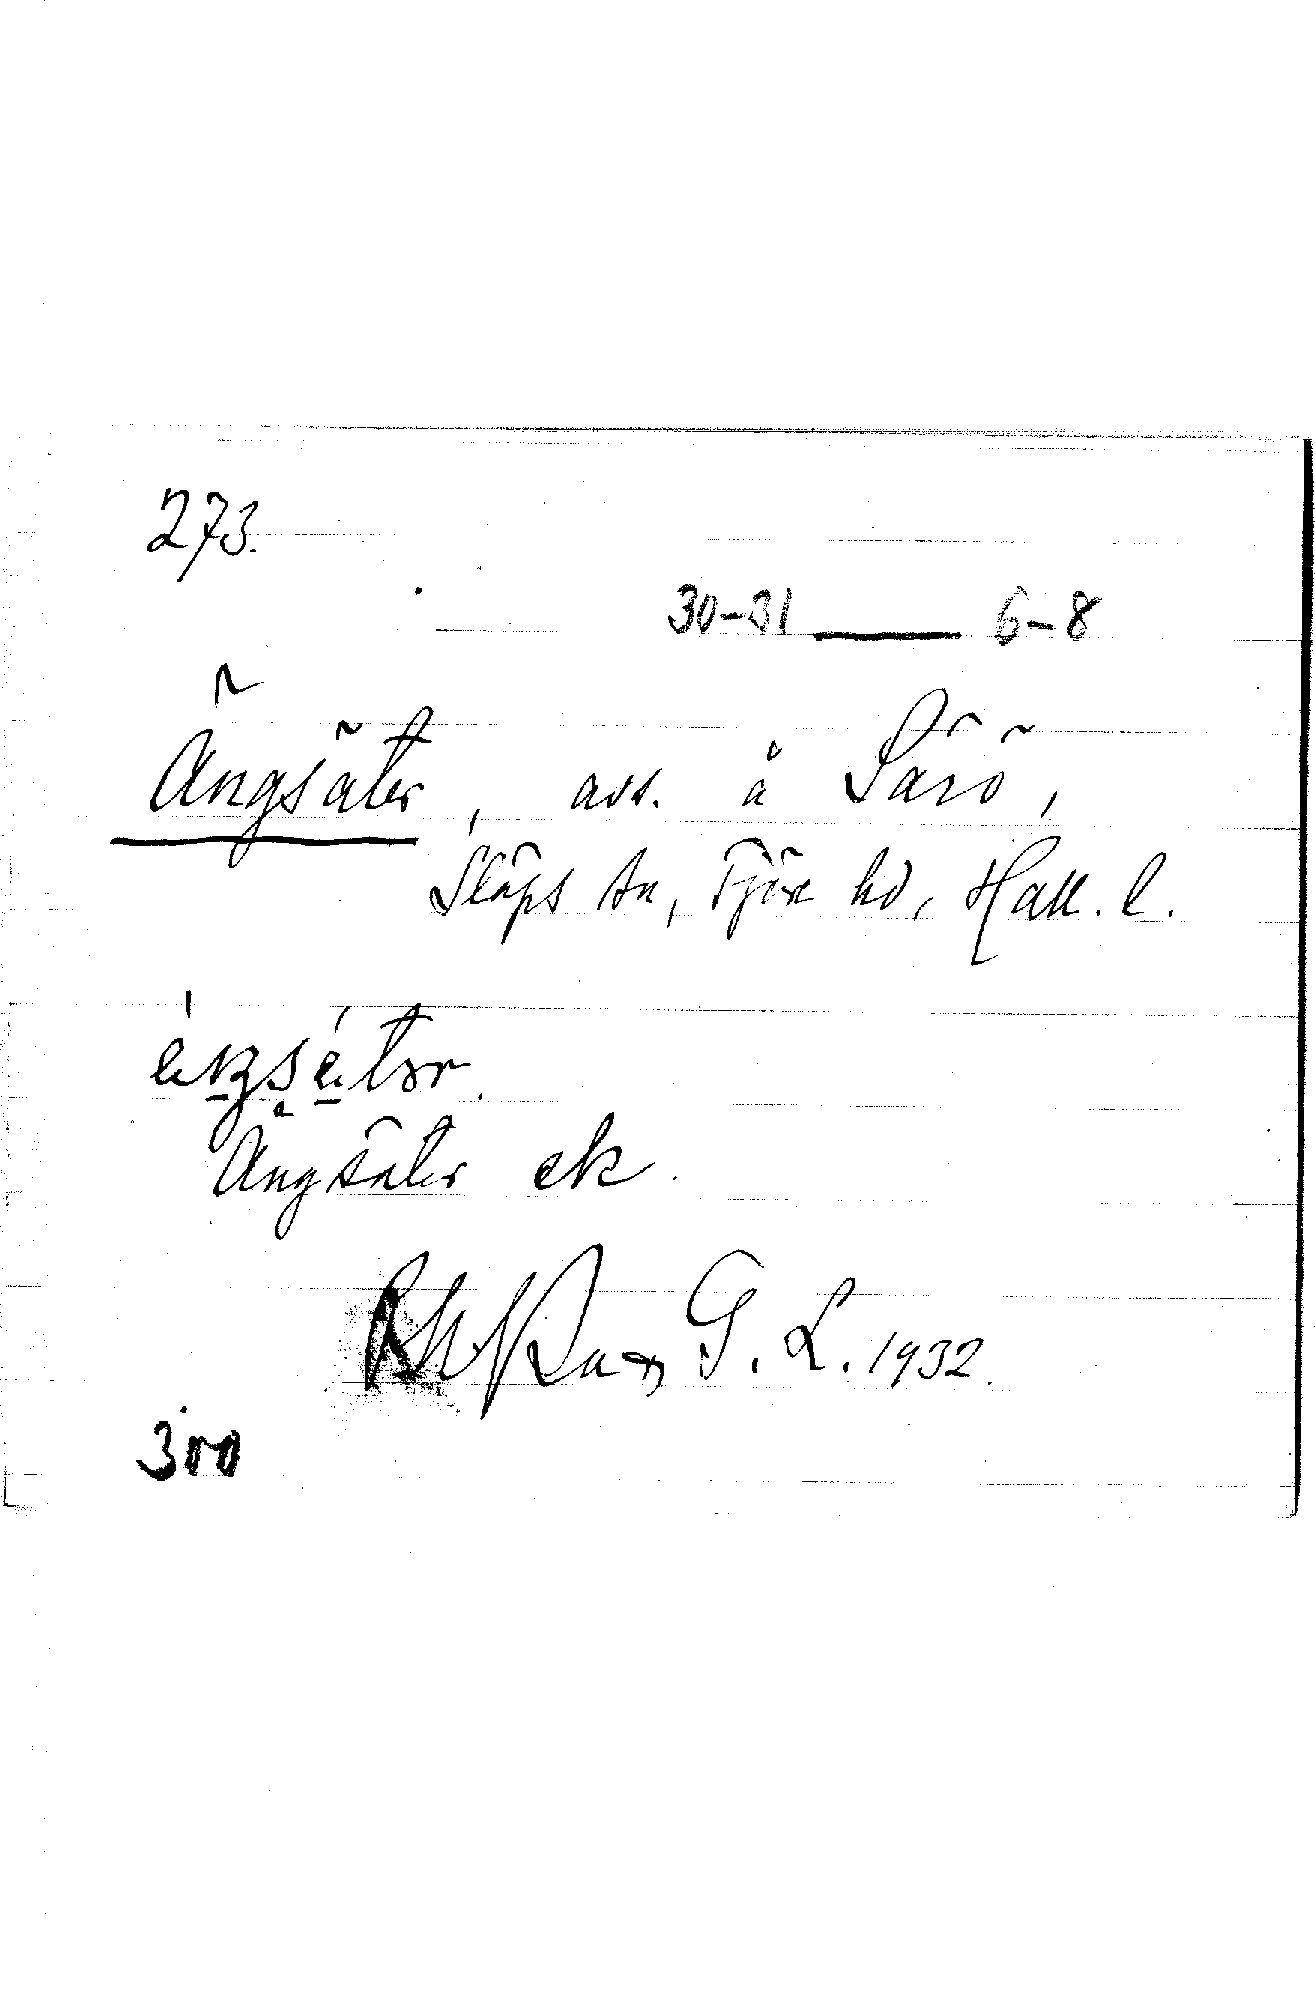 273.
30-31 — 6-8
Ängsäter, avs. å Särö,
Släps sn, Fjäre hd, Hall. l.
Ängsäter ek.
G. L. 1932.
300